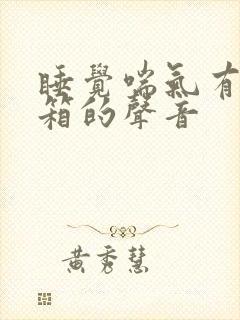 睡覺喘氣有
箱的聲音
黃秀慧